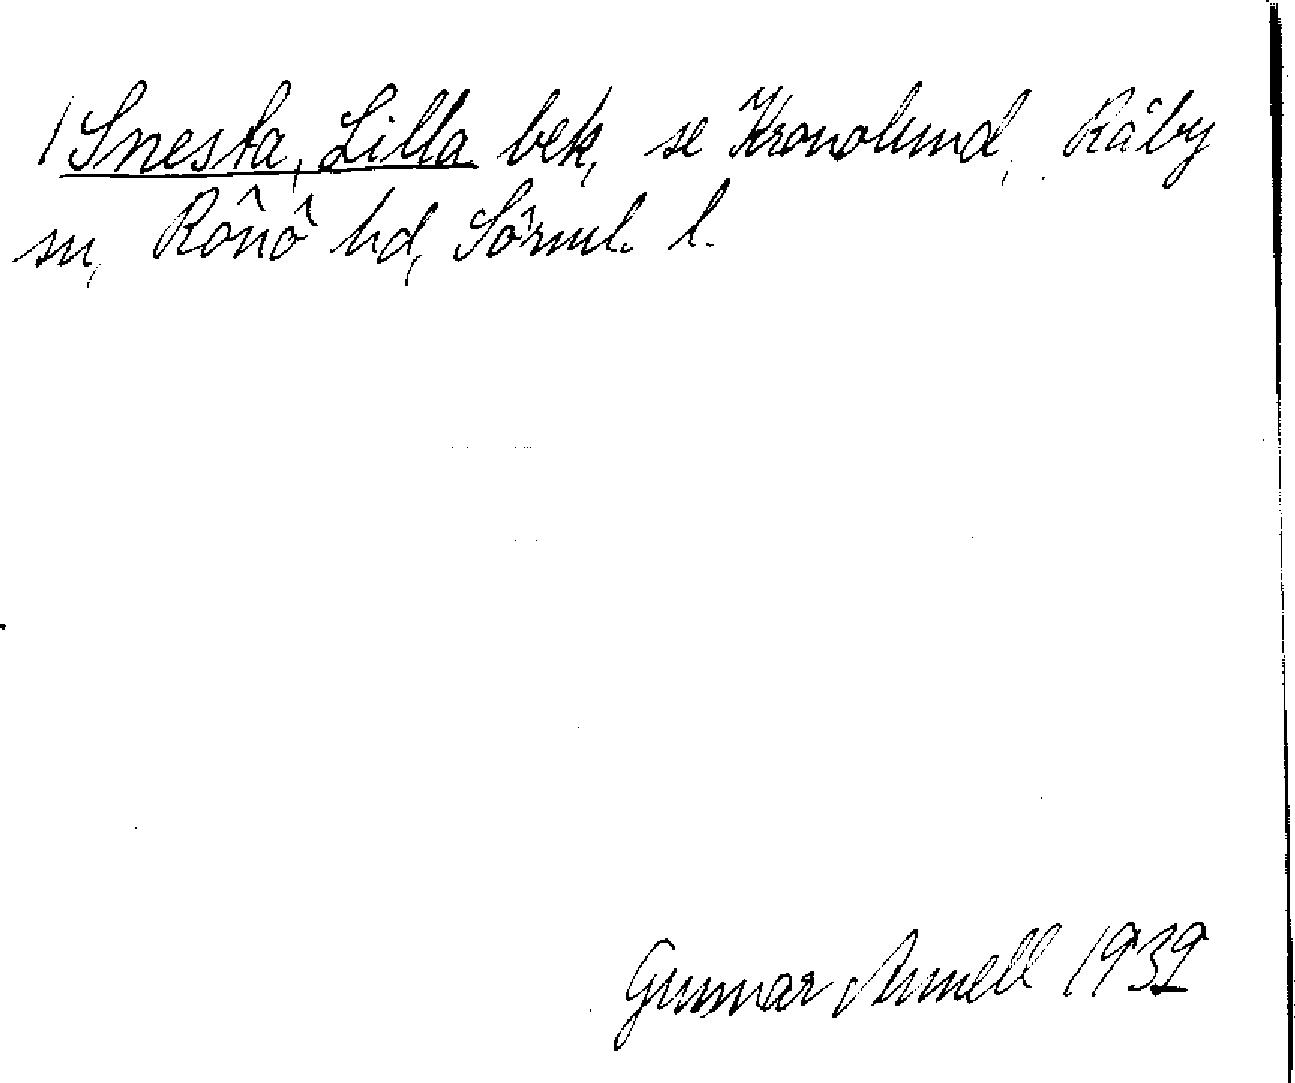 /Snesta, Lilla bek, se Kronolund, Råby
sn, Rônô hd, Sôrml. l.
Gunnar Annell 1932